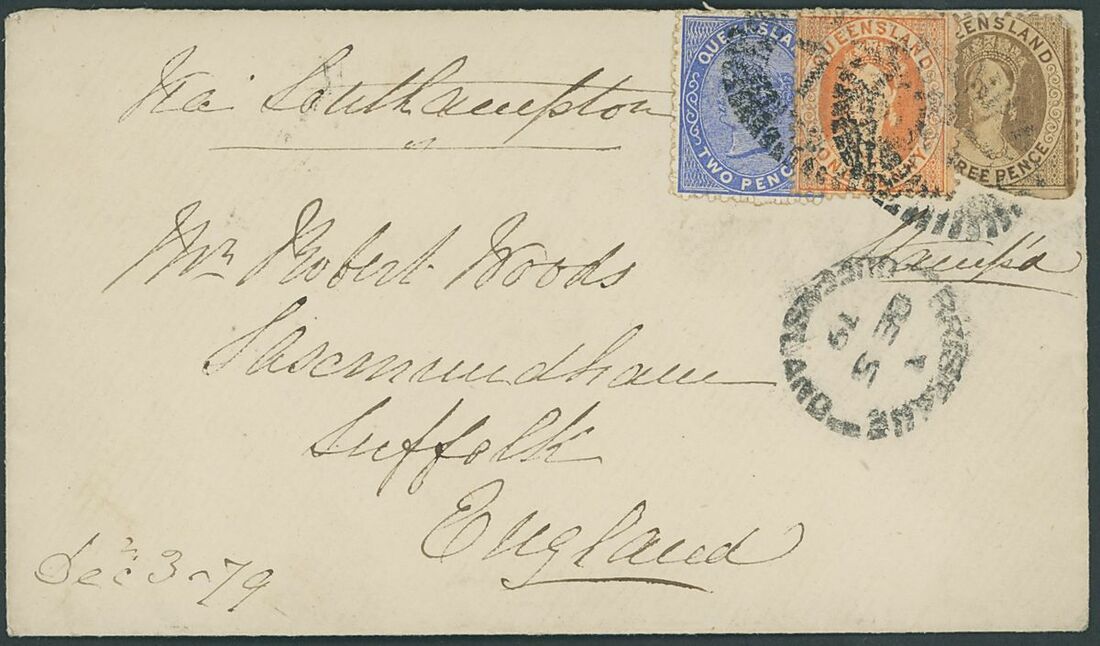 Via Southampton
QUEENSLAND
TWO PENCE
QUEENSLAND
ONE PENNY
QUEENSLAND
THREE PENCE
Stamps
Mr Robert Woods
Saxmundham
Suffolk
England
BRISBANE
QUEENSLAND
Dec 3-79